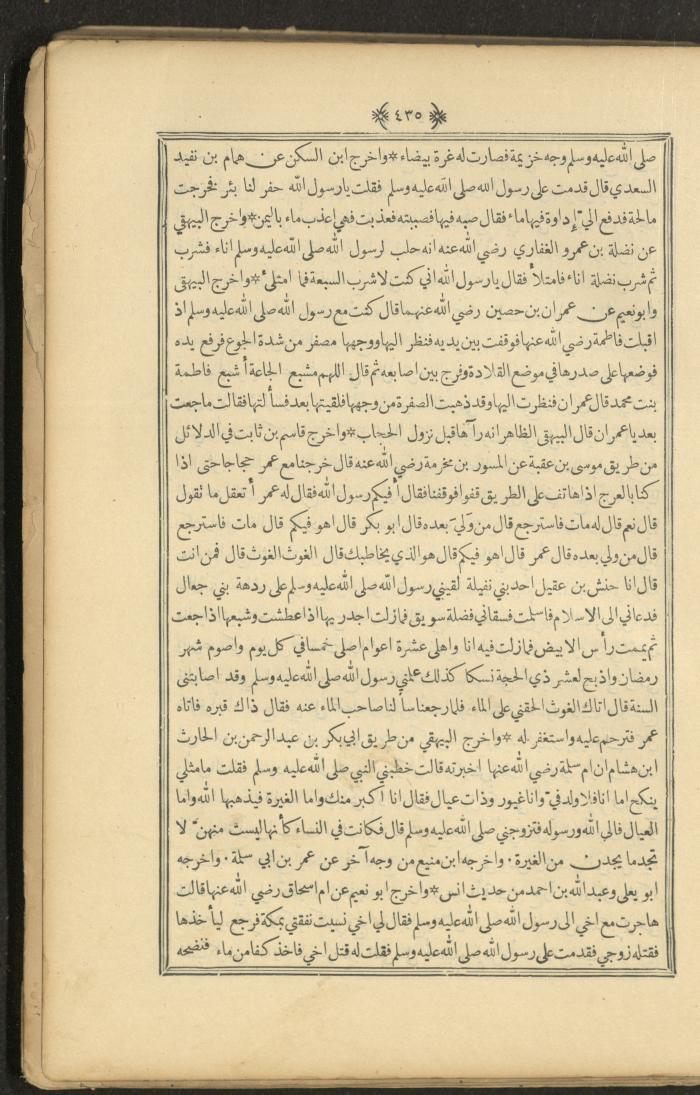 ﴿ ٤٣٥ ﴾
صلى الله عليه وسلم وجه خزيمة فصارت له غرة بيضاء * واخرج ابن السكن عن همام بن نفيد
السعدي قال قدمت على رسول الله صلى الله عليه وسلم فقلت يارسول الله حفر لنا بئر فخرجت
مالحة فدفع اليّ إداوة فيها ماء فقال صبه فيها فصببته فعذبت فهي اعذب ماء باليمن * واخرج البيهقي
عن نضلة بن عمرو الغفاري رضي الله عنه انه حلب لرسول الله صلى الله عليه وسلم اناء فشرب
ثم شرب نضلة اناء فامتلأ فقال يارسول الله اني كنت لاشرب السبعة فما امتلئ * واخرج البيهقي
وابونعيم عن عمران بن حصين رضي الله عنهما قال كنت مع رسول الله صلى الله عليه وسلم اذ
اقبلت فاطمة رضي الله عنها فوقفت بين يديه فنظر اليها ووجهها مصفر من شدة الجوع فرفع يده
فوضعها على صدرها في موضع القلادة وفرج بين اصابعه ثم قال اللهم مشبع الجاعة أشبع فاطمة
بنت محمد قال عمران فنظرت اليها وقد ذهبت الصفرة من وجهها فلقيتها بعد فسألتها فقالت ماجعت
بعد ياعمران قال البيهقي الظاهر انه رآها قبل نزول الحجاب * واخرج قاسم بن ثابت في الدلائل
من طريق موسى بن عقبة عن المسور بن مخرمة رضي الله عنه قال خرجنا مع عمر حجاجا حتى اذا
كنا بالعرج اذا هاتف على الطريق قفوا فوقفنا فقال أفيكم رسول الله فقال له عمر أتعقل ما تقول
قال نعم قال له مات فاسترجع قال من وَلِيَ بعده قال ابو بكر قال اهو فيكم قال مات فاسترجع
قال من ولي بعده قال عمر قال اهو فيكم قال هو الذي يخاطبك قال الغوث الغوث قال فمن انت
قال انا حنش بن عقيل احد بني نفيلة لقيني رسول الله صلى الله عليه وسلم على ردهة بني جعال
فدعاني الى الاسلام فاسلمت فسقاني فضلة سويق فما زلت اجد ريها اذا عطشت وشبعها اذا جعت
ثم يممت رأس الابيض فما زلت فيه انا واهلى عشرة اعوام اصلى خمسا في كل يوم واصوم شهر
رمضان واذبح لعشر ذي الحجة نسكا كذلك علمني رسول الله صلى الله عليه وسلم وقد اصابتنى
السنة قال اتاك الغوث الحقني على الماء فلما رجعنا سألنا صاحب الماء عنه فقال ذاك قبره فاتاه
عمر فترحم عليه واستغفر له * واخرج البيهقي من طريق ابي بكر بن عبد الرحمن بن الحارث
ابن هشام ان ام سلمة رضي الله عنها اخبرته قالت خطبني النبي صلى الله عليه وسلم فقلت مامثلي
ينكح اما انا فلا ولد فيّ وانا غيور وذات عيال فقال انا اكبر منك واما الغيرة فيذهبها الله واما
العيال فالى الله ورسوله فتزوجني صلى الله عليه وسلم قال فكانت في النساء كأنها ليست منهن لا
تجد ما يجدن من الغيرة . واخرجه ابن منيع من وجه آخر عن عمر بن ابي سلمة . واخرجه
ابو يعلى وعبد الله بن احمد من حديث انس * واخرج ابو نعيم عن ام اسحاق رضي الله عنها قالت
هاجرت مع اخي الى رسول الله صلى الله عليه وسلم فقال لي اخي نسيت نفقتي بمكة فرجع ليأخذها
فقتله زوجي فقدمت على رسول الله صلى الله عليه وسلم فقلت له قتل اخي فاخذ كفا من ماء فنضحه